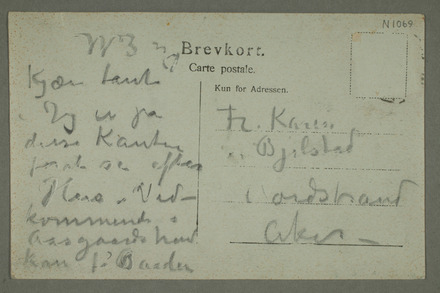 N1069
Brevkort.
Carte postale.
Kun for Adressen.
Kjære tante
Jeg er paa
disse Kanter
for at se efter
Hus. Ved-
kommende i
Aasgaardstrand
kan få Baaden
Fr. Karen
Bjølstad
Nordstrand
Aker